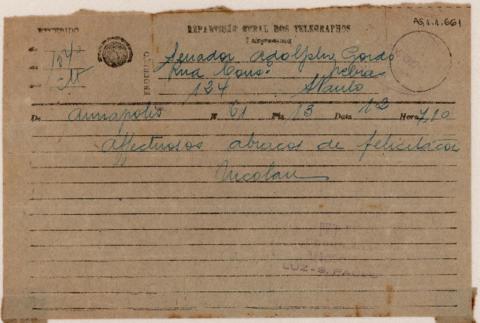 AG.1.1.661
RECEBIDO
REPARTIÇÃO GERAL DOS TELEGRAPHOS
ENDEREÇO
Senador Adolpho Gordo
Rua Cons. Nebias
124 S Paulo
De Annapolis N. 61 Pls 13 Data 12 Hora 7,10
Affectuosos abraços de felicitações
Nicolau
LUZ-S. PAULO